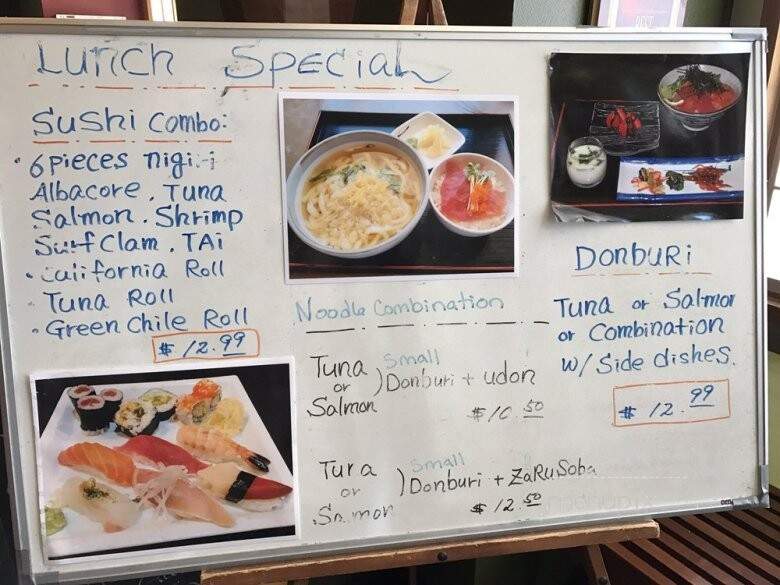 Lunch Special
Sushi Combo:
• 6 pieces nigiri
Albacore . Tuna
Salmon . Shrimp
Surf Clam . TAi
• California Roll
• Tuna Roll
• Green Chile Roll
$ 12.99
Noodle Combination
Tuna or Salmon ) Small Donburi + udon
$ 10.50
Tuna or Salmon ) Small Donburi + ZaRuSoba
$ 12.50
DonbuRi
Tuna or Salmon
or Combination
w/ Side dishes.
$ 12.99